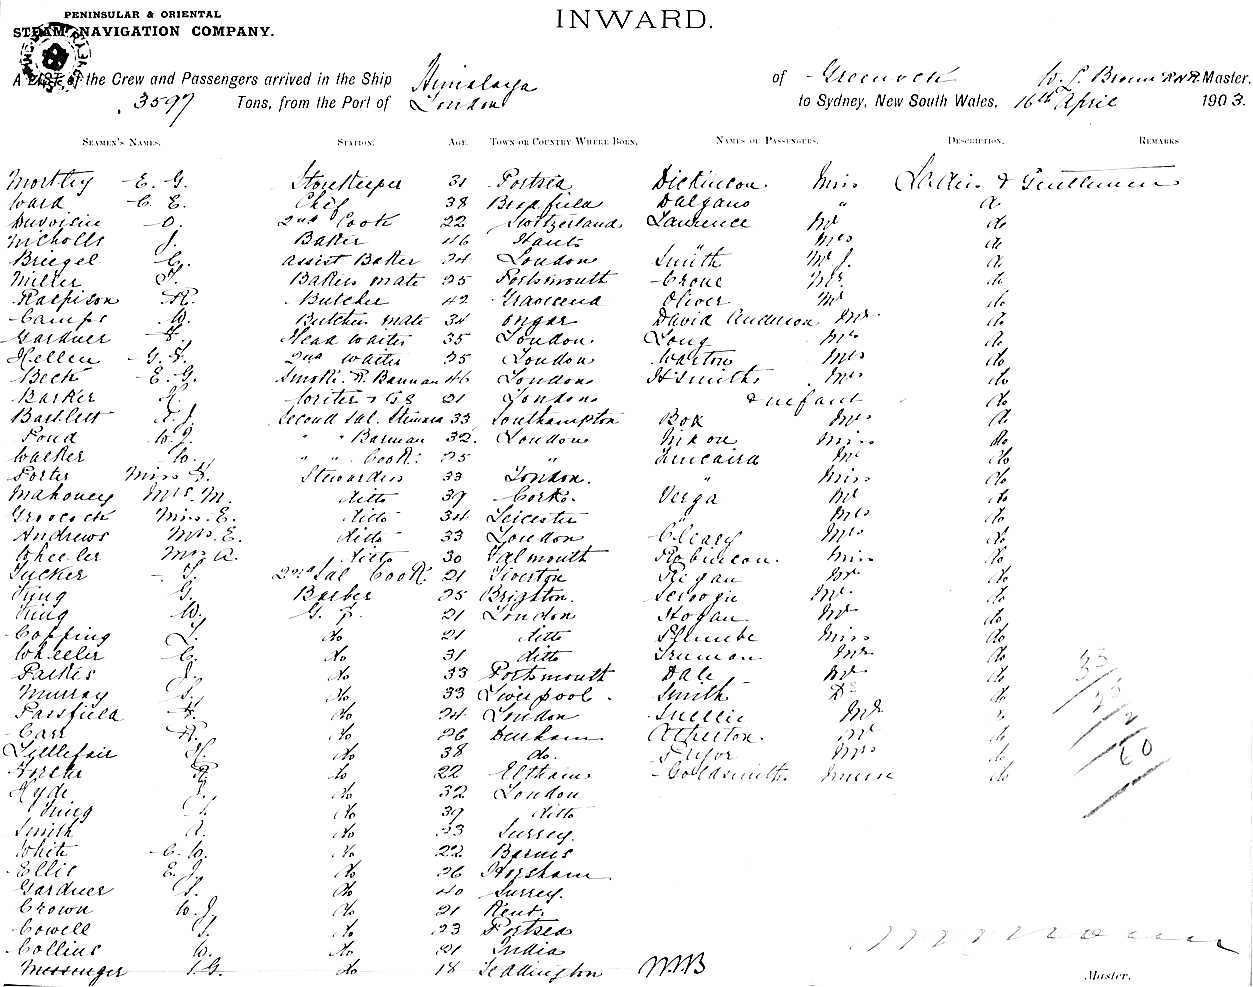 PENINSULAR & ORIENTAL
STEAM NAVIGATION COMPANY.
INWARD.
A LIST of the Crew and Passengers arrived in the Ship Himalaya of Greenock W. L. Broun RNR Master.
3597 Tons, from the Port of London to Sydney, New South Wales, 16th April 1903.
SEAMEN'S NAMES. STATION. AGE. TOWN OR COUNTRY WHERE BORN. NAMES OF PASSENGERS. DESCRIPTION. REMARKS
Mortley E. G. Storekeeper 31 Portsea Dickinson. Miss Ladies & Gentlemen
Ward C. E. Chef 38 Dalgano " do
Duvoisin O. 2nd Cook 22 Switzerland Laurence Mr do
Nicholls J. Baker 46 Hants " Mrs do
Briegel C. assist Baker 24 London Smith Mr J. do
Miller F. Bakers mate 25 Portsmouth Crone Mr. do
R. Butcher 42 Gravesend Oliver Mr do
Camps W. Butchers mate 34 Ongar David Anderson Mrs do
Gardner F. Head Waiter 35 London. Long Mrs do
Hellen G. F. 2nd Waiter 25 London Warton Mrs do
Beck E. G. Smoke. R. Barman 46 London H Smith Mrs do
Barker H. Writer & GS 21 London & infant do
Bartlett A. J. Second Sal. Steward 33 Southampton Box Mrs do
Pond W. J. " " Barman 32. London Nixon Miss do
Walker W. " " Cook. 25 " Mr do
Porter Miss F. Stewardess 33 London. " Miss do
Mahoney Mrs. M. ditto 39 Cork. Verga Mr do
Groocock Miss. E. ditto 34 Leicester " Mrs do
Andrews Mrs. E. ditto 33 London Cleary Mrs do
Wheeler Mrs A. ditto 30 Falmouth Robinson. Miss do
Tucker F. 2nd Sal Cook. 21 Tiverton Regan Mr do
King G. Barber 25 Brighton. Scroogie Mr. do
King W. G. S. 21 London Hogan Mr do
Copping L. do 21 ditto Plumbe Miss do
Wheeler C. do 31 ditto Truman Mr do
Parkes J. do 33 Portsmouth Dale Mr do
Murray S. do 33 Liverpool. Smith Dr do
Passfield F. do 24 London Snellie Mr
Carr R. do 26 Denham Atherton. Mr do
Lyllefair H. do 38 do. Pryor Mrs do
R. do 22 Eltham Goldsmith. do
Hyde J. do 32 London
King do 39 ditto
Smith A. do 23 Surrey.
White C. W. do 22 Barnes
Ellis E. J. do 26 Horsham.
Gardner S. do 40 Surrey.
Crown W. J. do 21 Kent.
Cowell S. do 23 Portsea
Collins W. do 21 India
Messenger J. G. do 18 Teddington
60
Master.